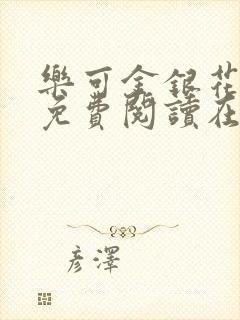 樂可金銀花
免費閱讀在
彥澤